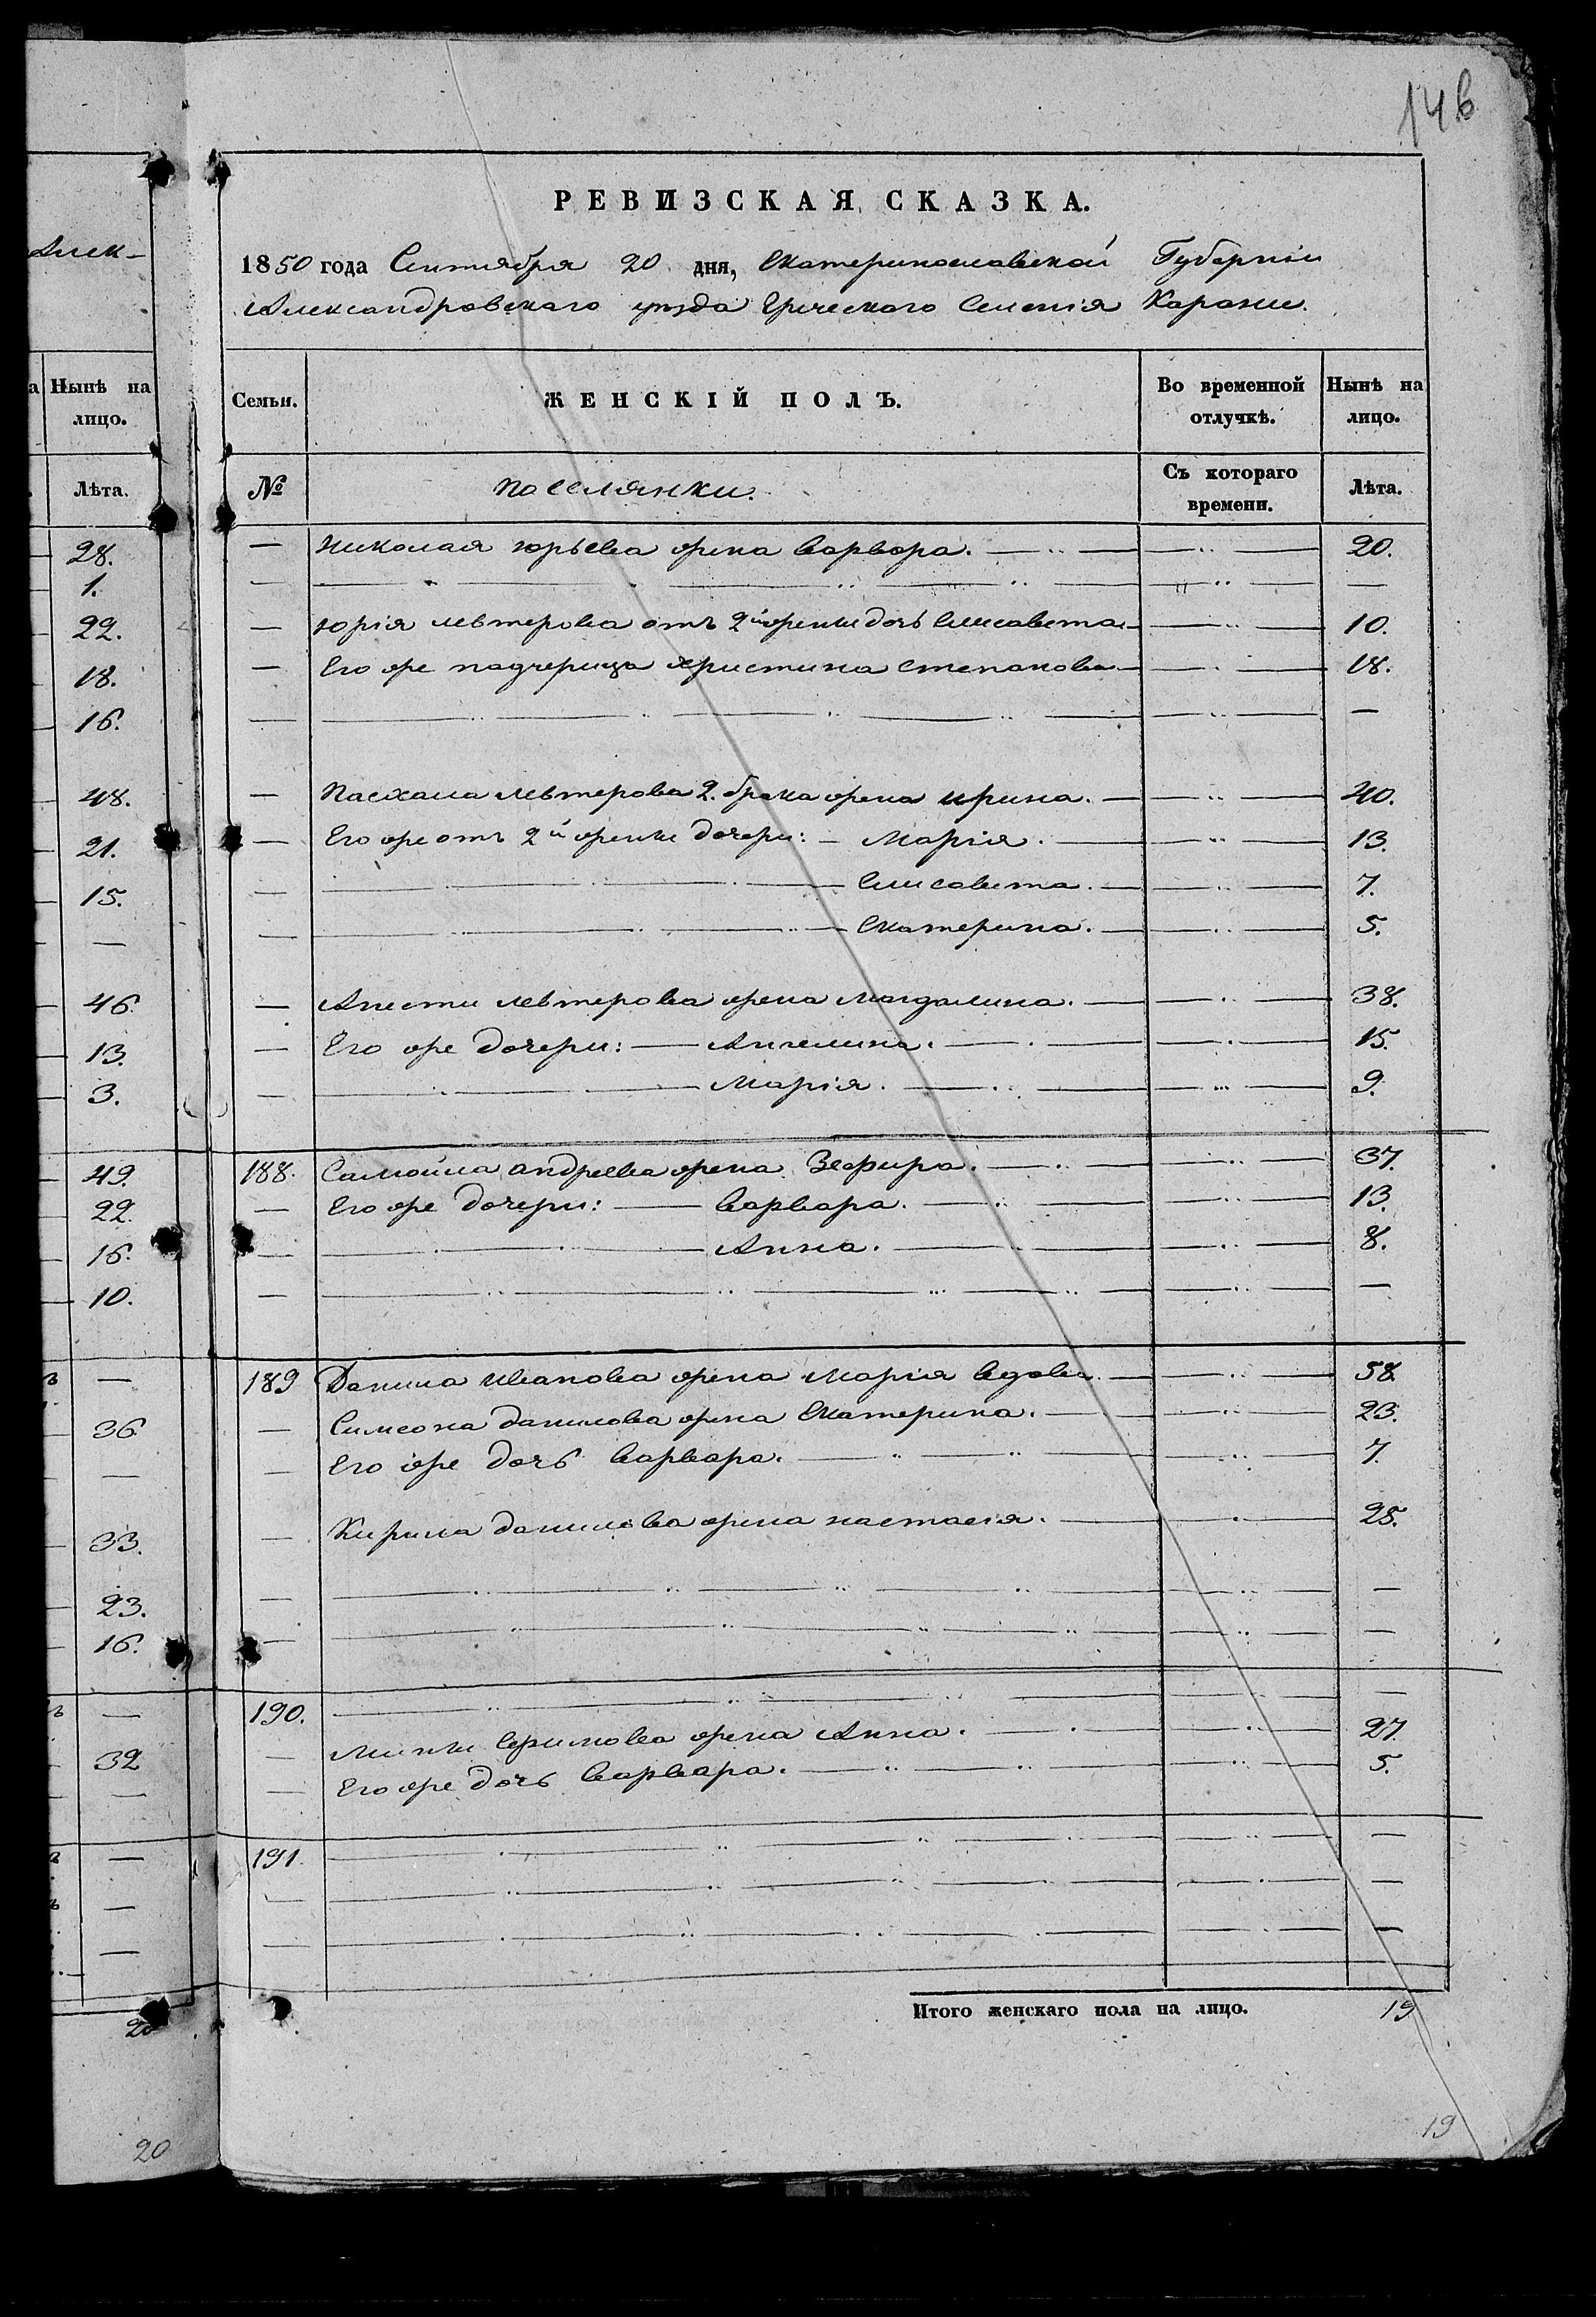 146
РЕВИЗСКАЯ СКАЗКА.
1850 года Сентября 20 дня, Екатеринославской Губерніи
Александровскаго уѣзда Греческаго Селенія Карани.
Семьи. ЖЕНСКІЙ ПОЛЪ. Во временной отлучкѣ. Нынѣ на лицо.
№ Поселянки. Съ котораго времени. Лѣта.
— Николая Юрьева жена Варвара. 20.
— —
— Юрія Левтерова отъ 2й женки дочь Елисавета 10.
— Его же падчерица Христина Степанова 18.
— —
— Пасхала Левтерова 2. брака жена Ирина. 40.
— Его же отъ 2й женки дочери: Марія. 13.
— Елисавета. 7.
— Екатерина. 5.
— Анести Левтерова жена Магдалина. 38.
— Его же дочери: Ангелина. 15.
— Марія. 9.
188. Самойла Андреева жена Зефира. 37.
— Его же дочери: Варвара. 13.
— Анна. 8.
— —
189 Данила Иванова жена Марія вдова. 58.
— Симеона Данилова жена Екатерина. 23.
— Его же дочь Варвара. 7.
— Кирила Данилова жена Настасія. 25.
— —
— —
190. —
— жена Анна. 27.
— Его же дочь Варвара. 5.
191. —
— —
— —
Итого женскаго пола на лицо. 19
19
Алек-
Нынѣ на
лицо.
Лѣта.
28.
1.
22.
18.
16.
48.
21.
15.
—
46.
13.
3.
49.
22.
16.
10.
—
36.
—
33.
23.
16.
—
32
—
—
—
—
20
20